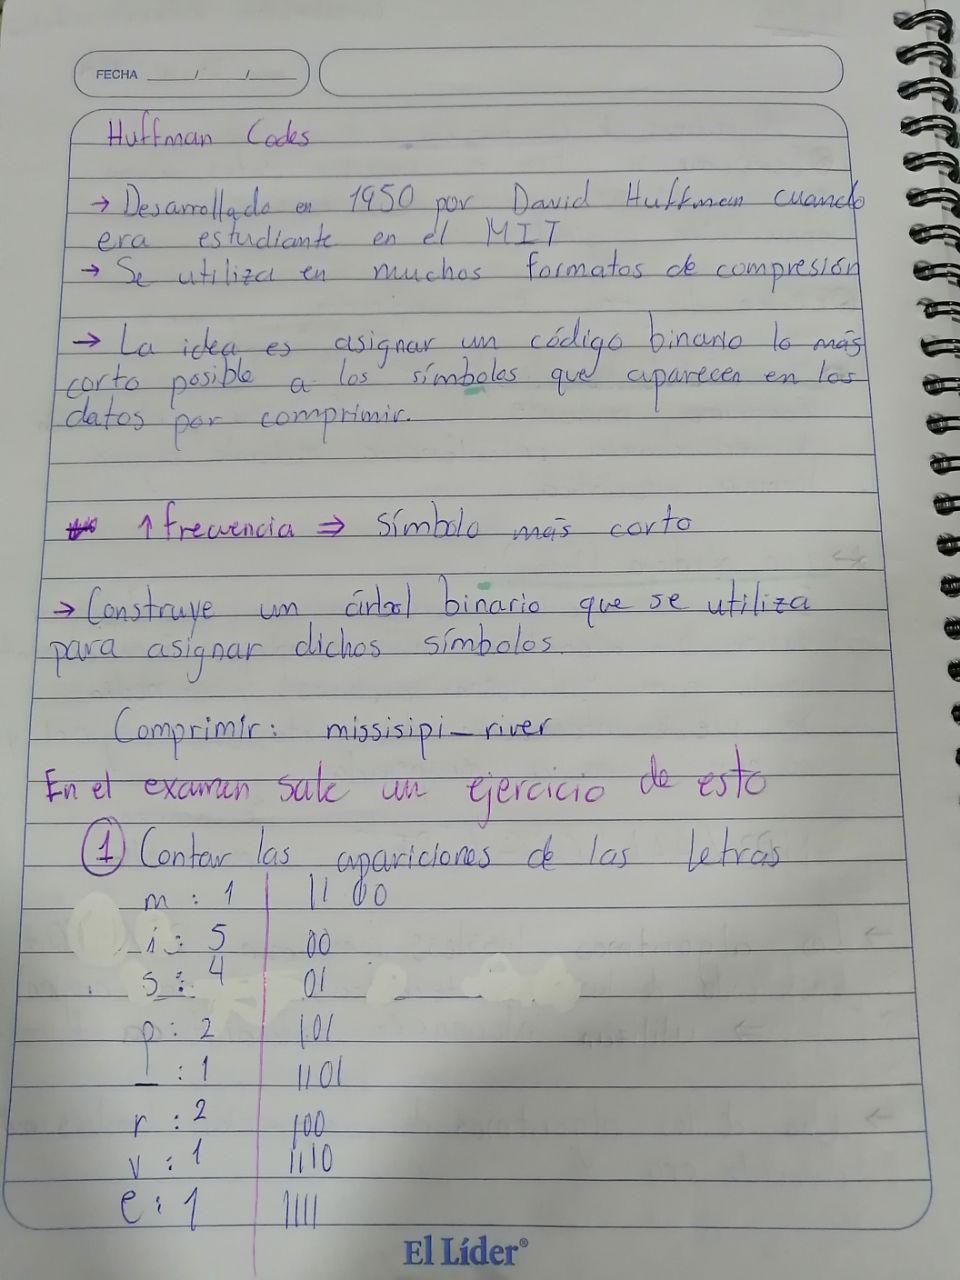 FECHA ___/___/___
Huffman Codes
→ Desarrollado en 1950 por David Huffman cuando
era estudiante en el MIT
→ Se utiliza en muchos formatos de compresión
→ La idea es asignar un código binario lo más
corto posible a los símbolos que aparecen en los
datos por comprimir.
↑ frecuencia ⇒ símbolo más corto
→ Construye un árbol binario que se utiliza
para asignar dichos símbolos.
Comprimir: missisipi_river
En el examen sale un ejercicio de esto
① Contar las apariciones de las letras
m : 1 1100
i : 5 00
s : 4 01
p : 2 101
_ : 1 1101
r : 2 100
v : 1 1110
e : 1 1111
El Líder®